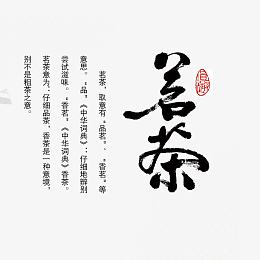 茗茶
茗茶，取意有“品茗”、“香茗”等
意思。“品”，《中华词典》：仔细地辨别
尝试滋味。“香茗”，《中华词典》香茶。
茗茶意为：仔细品茶，香茶是一种意境，
别不是粗茶之意。